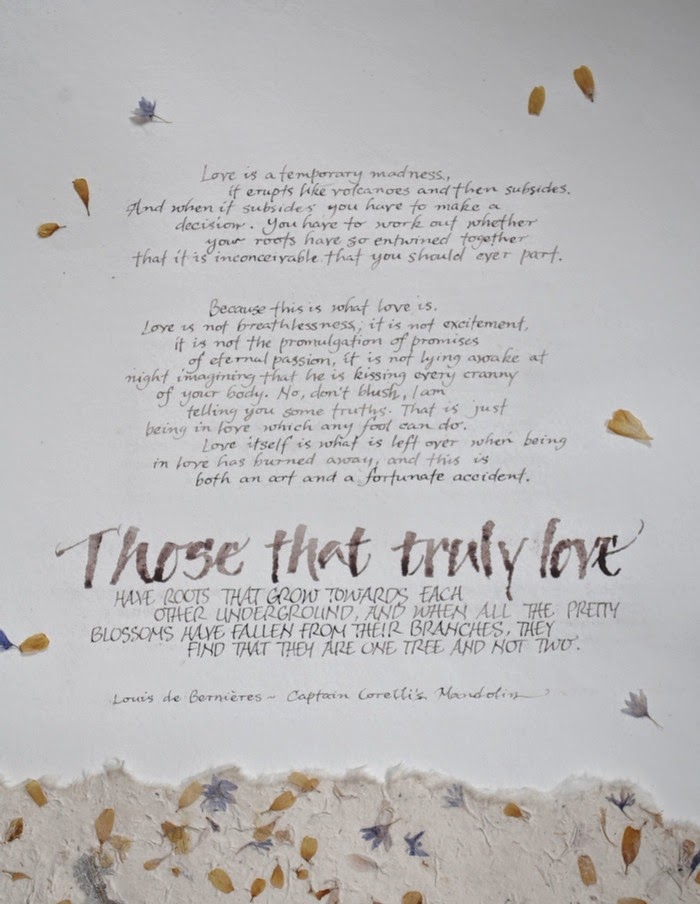 Love is a temporary madness,
it erupts like volcanoes and then subsides.
And when it subsides you have to make a
decision. You have to work out whether
your roots have so entwined together
that it is inconceivable that you should ever part.
Because this is what love is.
Love is not breathlessness, it is not excitement,
it is not the promulgation of promises
of eternal passion, it is not lying awake at
night imagining that he is kissing every cranny
of your body. No, don't blush, I am
telling you some truths. That is just
being in love which any fool can do.
Love itself is what is left over when being
in love has burned away, and this is
both an art and a fortunate accident.
Those that truly love
HAVE ROOTS THAT GROW TOWARDS EACH
OTHER UNDERGROUND, AND WHEN ALL THE PRETTY
BLOSSOMS HAVE FALLEN FROM THEIR BRANCHES, THEY
FIND THAT THEY ARE ONE TREE AND NOT TWO.
Louis de Bernières ~ Captain Corelli's Mandolin